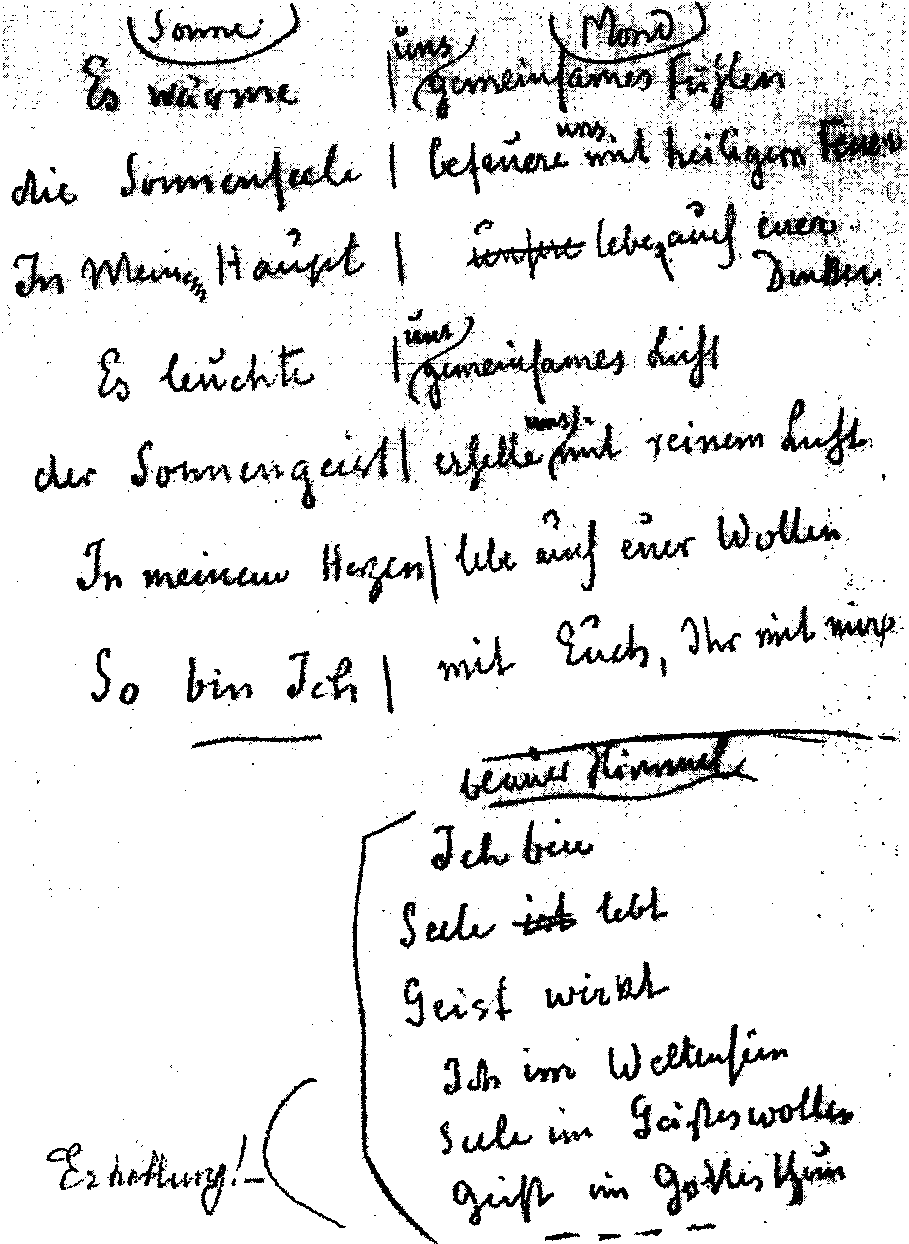 Sonne Mond
uns
Es wärme | gemeinsames Fühlen
uns
die Sonnenseele | befeuere mit heiligem Feuer
In Mein Haupt | unsere lebe auch euer
Denken
uns
Es leuchte | gemeinsames Licht
uns
der Sonnengeist | erhelle mit reinem Licht
In meinem Herzen | lebe auch euer Wollen
So bin Ich | mit Euch, Ihr mit mir
blauer Himmel
Ich bin
Seele ist lebt
Geist wirkt
Ich im Weltensein
Seele im Geisteswollen
Erhaltung! –
Geist im Gottesthun